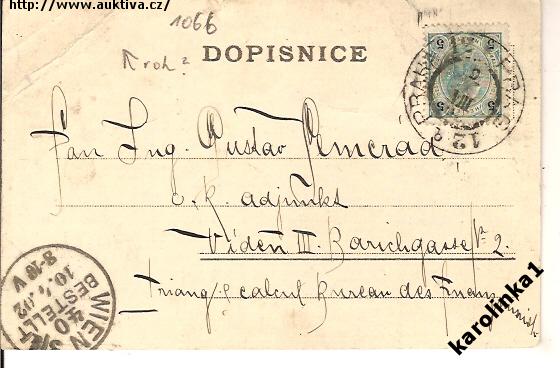 http://www.auktiva.cz/
1066
roh?
DOPISNICE
5 5
5 5
PRAHA PRAG
12
Pan Ing. Gustav
c. k. adjunkt
Vídeň III. Barichgasse № 2.
Triang. & calcul Bureau des Finanz
WIEN 40
BESTELLT
8-10 V
karolinka1